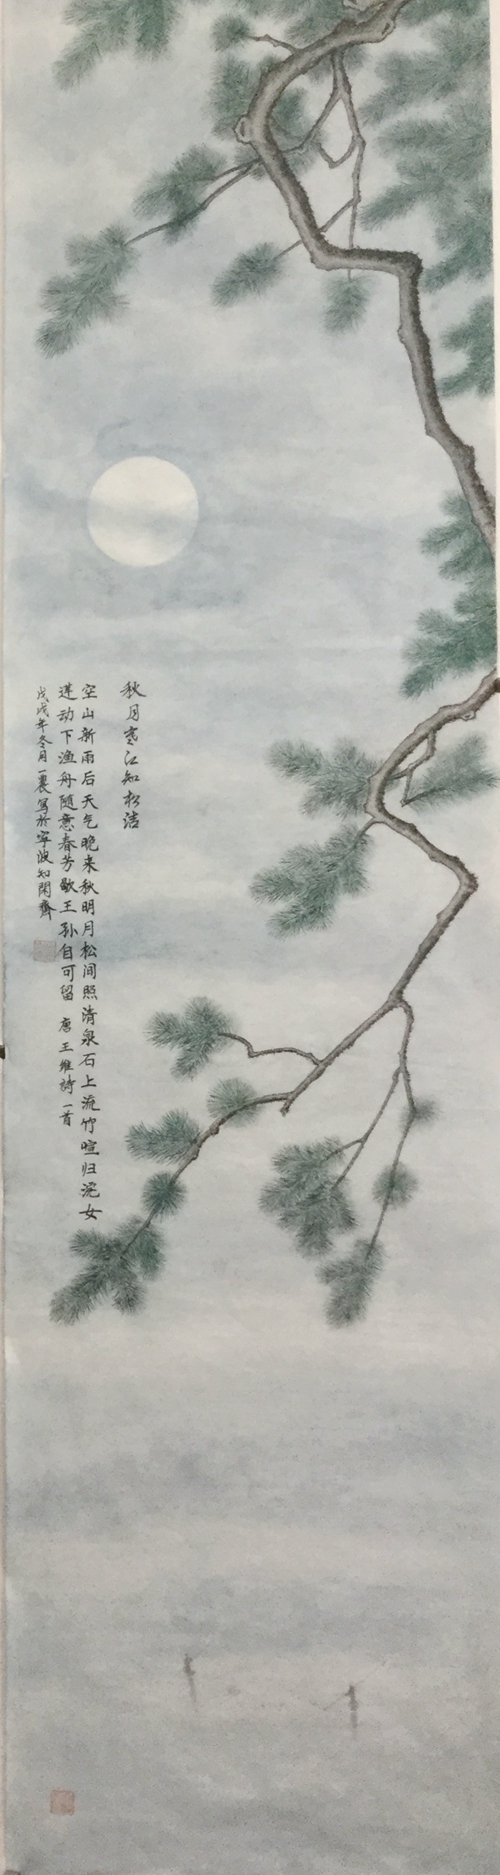 秋月寒江知松洁
空山新雨后天气晚来秋明月松间照清泉石上流竹喧归浣女
莲动下渔舟随意春芳歇王孙自可留 唐王维詩一首
戊戌年冬月一農写於宁波知閑齋